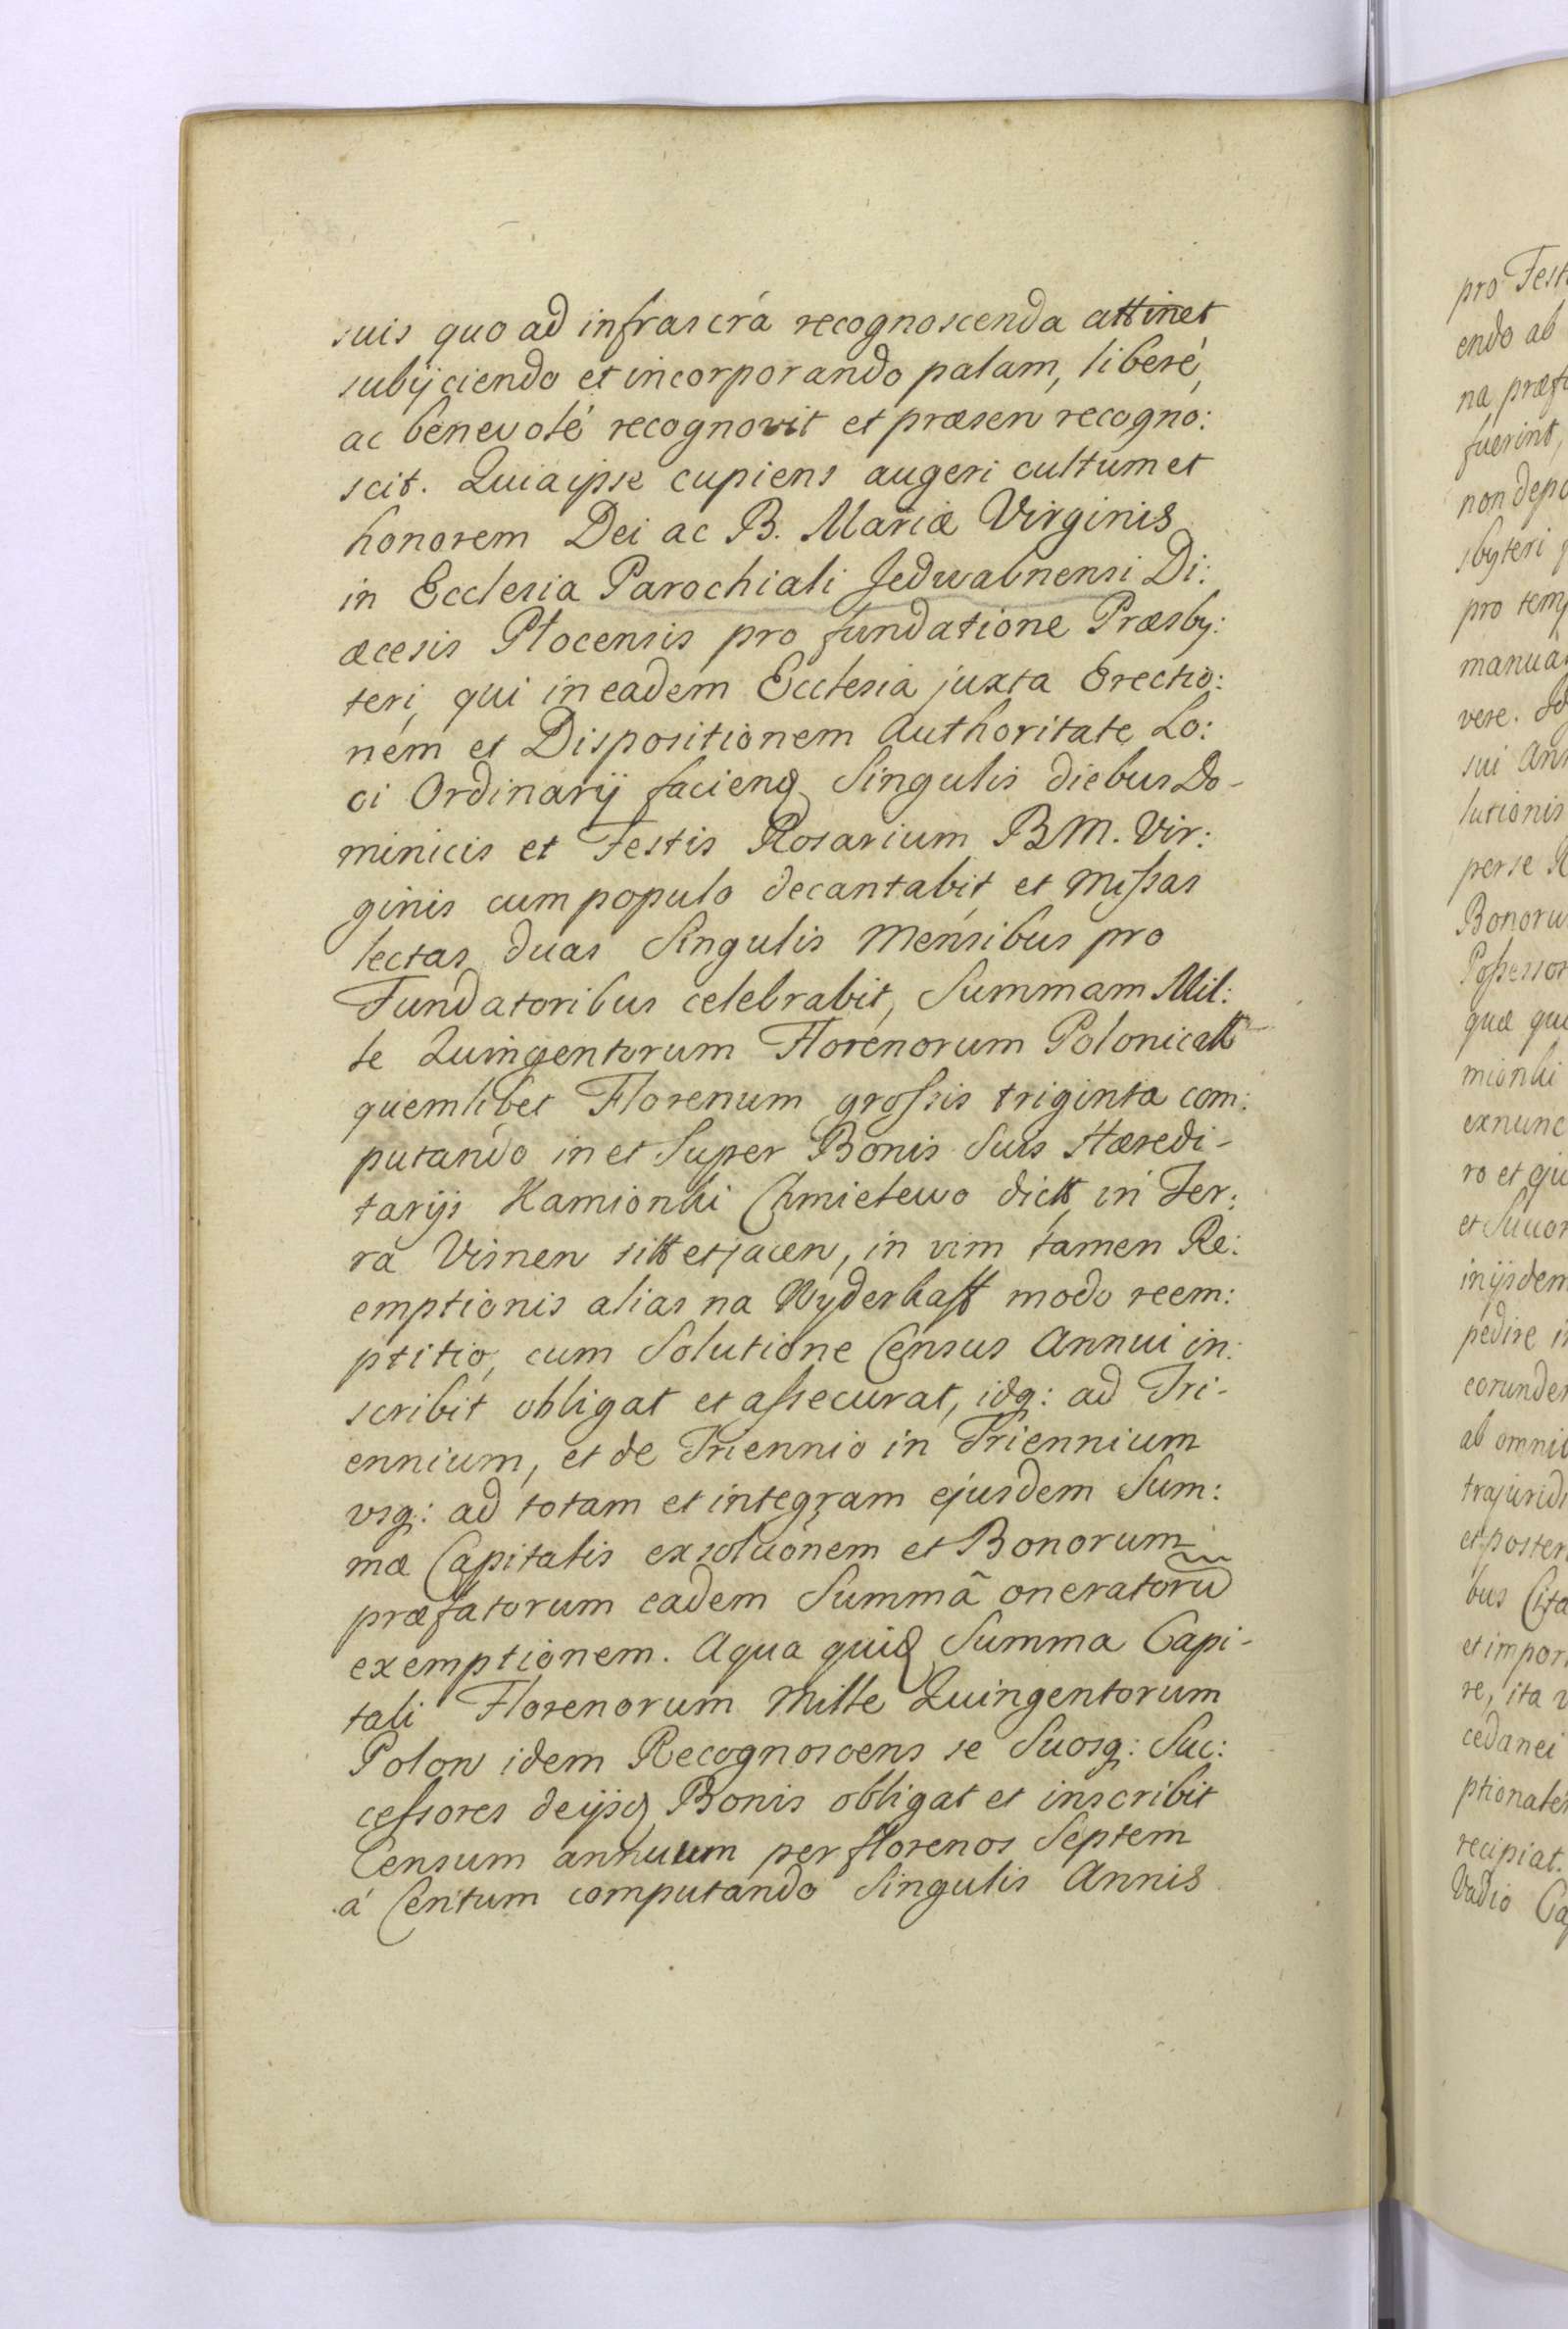 suis quo ad infrascrá recognoscenda attinet
subijciendo et incorporando palam, liberé,
ac benevolé recognovit et præsen recogno:
scit. Quia ipse cupiens augeri cultum et
honorem Dei ac B. Mariæ Virginis
in Ecclesia Parochiali Jedwabnensi Di:
æcesis Plocensis pro fundatione Præsby:
teri, qui in eadem Ecclesia juxta Erectio:
nem et Dispositionem Authoritate Lo:
ci Ordinarij faciend Singulis diebus Do-
minicis et Festis Rosarium BM. Vir:
ginis cum populo decantabit et Missas
lectas duas Singulis Mensibus pro
Fundatoribus celebrabit, Summam Mil:
le Quingentorum Florenorum Polonicall
quemlibet Florenum grossis triginta com:
putando in et Super Bonis Suis Hæredi-
tarijs Kamionki Chmielewo dict in Ter:
ra Visnen sitt et jacen, in vim tamen Re:
emptionis alias na Wyderkaff modo reem:
ptitio, cum Solutione Census Annui in:
scribit obligat et assecurat, idq: ad Tri-
ennium, et de Triennio in Triennium
vsq: ad totam et integram ejusdem Sum:
mæ Capitalis exsoluónem et Bonorum
præfatorum eadem Summâ oneratorũ
exemptionem. A qua quid Summa Capi-
tali Florenorum Mille Quingentorum
Polon idem Recognoscens se Suosq: Suc:
cessores de ijsd Bonis obligat et inscribit
Censum annuum per florenos Septem
á Centum computando Singulis Annis
pro Fest
endo ab
na præf
fuerint,
non depo
sbyteri
pro temp
manua
vere.
sui Ann
lutionis
per se
Bonoru
Possessor
quæ qu
mionki
exnunc
ro et eju
et Succor
in ijsdem
pedire i
eorunde
ab omni
tra juridi
et poster
bus Cita
et impor
re, ita
cedanei
ptionale
recipiat.
Vadio Ca